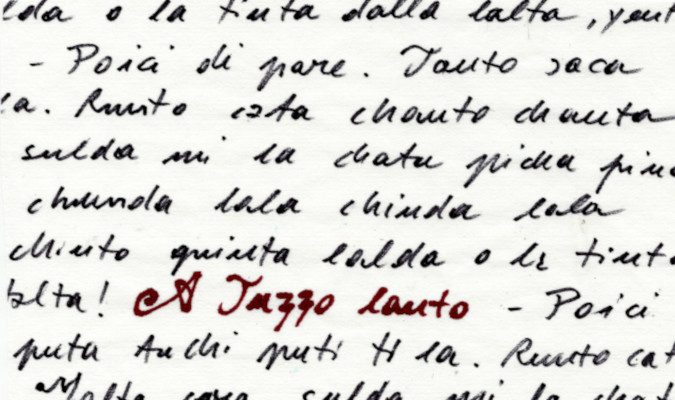 lda o la tinta dalla lalta, yent
- Poici di pare. Tanto saca
la. Runto esta chanto chanta
sulda mi la chata picha pinc
chunda lala chinda lala
chinto quinta lalda o la tinta
lalta! A Tazzo lanto - Poici
puta Anchi puti ti la. Runto cat
Malta cara sulda mi la chat